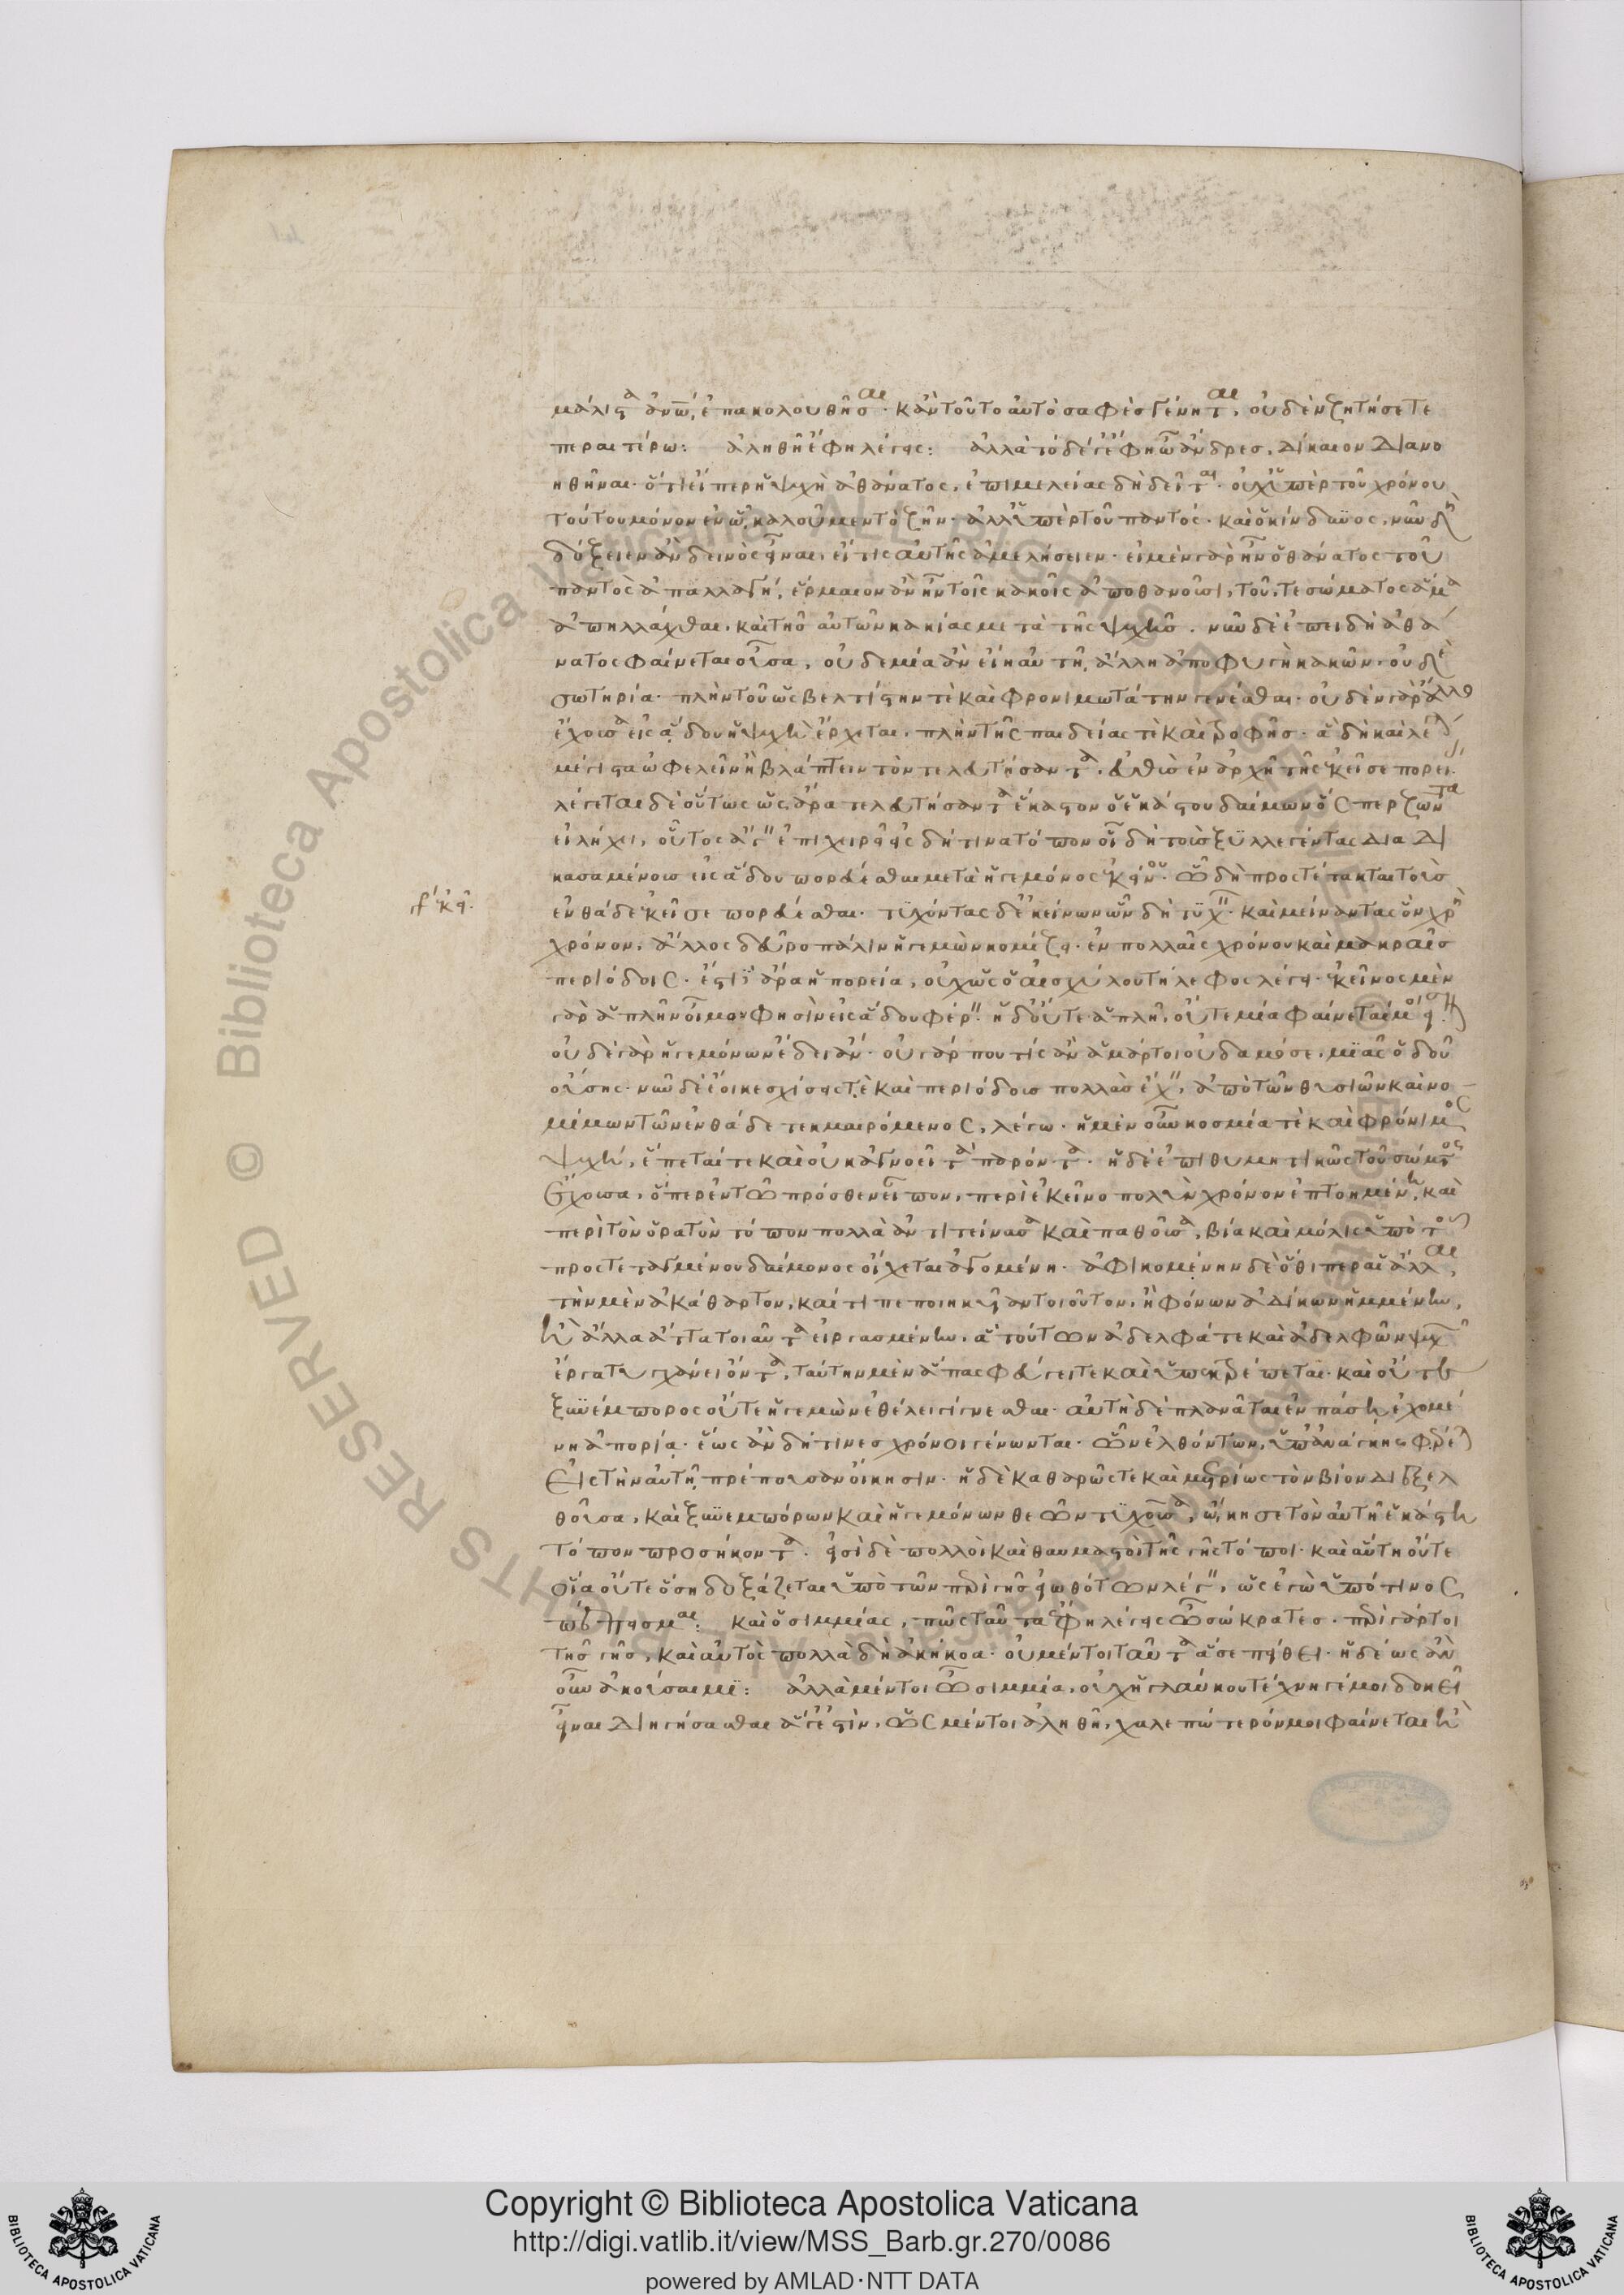 μάλιστα ἀνω̅, ἐπακολουθῆσαι· κἂν τοῦτο αὐτὸ σαφὲς γένηται, οὐδὲν ζητήσετε
περαιτέρω: ἀληθῆ ἔφη λέγεις: ἀλλὰ τόδέ γ' ἔφη ὦ ἄνδρες, δίκαιον διανο
ηθῆναι· ὅτι εἴπερ ἡ ψυχὴ ἀθάνατος, ἐπιμελείας δὴ δεῖται· οὐχ ὑπὲρ τοῦ χρόνου
τούτου μόνον ἐν ᾧ καλοῦμεν τὸ ζῆν· ἀλλ' ὑπὲρ τοῦ παντός· καὶ ὁ κίνδυνος, νῦν δὴ
δόξειεν ἂν δεινὸς εἶναι, εἴ τις αὐτῆς ἀμελήσειεν· εἰ μὲν γὰρ ἦν ὁ θάνατος τοῦ
παντὸς ἀπαλλαγή, ἕρμαιον ἂν ἦν τοῖς κακοῖς ἀποθανοῦσι, τοῦ τε σώματος ἅμα
ἀπηλλάχθαι, καὶ τῆς αὐτῶν κακίας μετὰ τῆς ψυχῆς· νῦν δὲ ἐπειδὴ ἀθά
νατος φαίνεται οὖσα, οὐδεμία ἂν εἴη αὐτῇ ἄλλη ἀποφυγὴ κακῶν· οὐδὲ
σωτηρία· πλὴν τοῦ ὡς βελτίστην τὲ καὶ φρονιμωτάτην γενέσθαι· οὐδὲν γὰρ ἄλλο
ἔχουσα εἰς ᾅδου ἡ ψυχὴ ἔρχεται, πλὴν τῆς παιδείας τὲ καὶ τροφῆς· ἃ δὴ καὶ λέγ
μέγιστα ὠφελεῖν ἢ βλάπτειν τὸν τελευτήσαντα, εὐθὺς ἐν ἀρχῇ τῆς ἐκεῖσε πορεί·
λέγεται δὲ οὕτως ὡς ἄρα τελευτήσαντα ἕκαστον ὁ ἑκάστου δαίμων ὅσπερ ζῶντα
εἰλήχει, οὗτος ἄγειν ἐπιχειρεῖ εἰς δή τινα τόπον οἷ δὴ τοὺς ξυλλεγέντας δια δι
κασαμένους εἰς ᾅδου πορεύεσθαι μετὰ ἡγεμόνος ἐκείνου· ᾧ δὴ προστέτακται τοὺς
ἐνθάδε ἐκεῖσε πορεύεσθαι· τυχόντας δ' ἐκεῖ νῶν ὧν δὴ τυχεῖν· καὶ μείναντας ὃν χρὴ
χρόνον, ἄλλος δεῦρο πάλιν ἡγεμὼν κομίζει· ἐν πολλαῖς χρόνου καὶ μακραῖς
περιόδοις· ἔστι δ' ἄρα ἡ πορεία, οὐχ ὡς ὁ αἰσχύλου τήλεφος λέγει· ἐκεῖνος μὲν
γὰρ ἁπλῆν οἶμον φησὶν εἰς ᾅδου φέρειν· ἡ δ' οὔτε ἁπλῆ, οὔτε μία φαίνεταί μοι εἶ
οὐδὲ γὰρ ἡγεμόνων ἔδει ἄν· οὐ γάρ που τις ἂν ἁμάρτοι οὐδαμόσε, μιᾶς ὁδοῦ
οὔσης· νῦν δὲ ἔοικε σχίσεις τὲ καὶ περιόδους πολλὰς ἔχειν, ἀπὸ τῶν θυσιῶν καὶ νο
μίμων τῶν ἐνθάδε τεκμαιρόμενος, λέγω· ἡ μὲν οὖν κοσμία τὲ καὶ φρόνιμος
ψυχή, ἕπεταί τε καὶ οὐκ ἀγνοεῖ τὰ παρόντα· ἡ δὲ ἐπιθυμητικῶς τοῦ σώματος
ἔχουσα, ὅπερ ἐν τῷ πρόσθεν εἶπον, περὶ ἐκεῖνο πολὺν χρόνον ἐπτοημένη, καὶ
περὶ τὸν ὁρατὸν τόπον πολλὰ ἀντιτείνασα καὶ παθοῦσα, βίᾳ καὶ μόλις ὑπὸ τοῦ
προστεταγμένου δαίμονος οἴχεται ἀγομένη· ἀφικομένην δὲ ὅθιπερ αἱ ἄλλαι,
τὴν μὲν ἀκάθαρτον, καί τι πεποιηκυῖαν τοιοῦτον, ἢ φόνων ἀδίκων ἡμμένην,
ἢ ἄλλα ἄττα τοιαῦτα εἰργασμένην, ἃ τούτων ἀδελφά τε καὶ ἀδελφῶν ψυχῶν
ἔργα τυγχάνει ὄντα, ταύτην μὲν ἅπας φεύγει τε καὶ ὑπεκτρέπεται· καὶ οὔτε
ξυνέμπορος οὔτε ἡγεμὼν ἐθέλει γίγνεσθαι· αὐτὴ δὲ πλανᾶται ἐν πάσῃ ἐχομέ
νη ἀπορίᾳ· ἕως ἂν δή τινες χρόνοι γένωνται· ὧν ἐλθόντων, ὑπ' ἀνάγκης φέρε
εἰς τὴν αὐτῇ πρέπουσαν οἴκησιν· ἡ δὲ καθαρῶς τε καὶ μετρίως τὸν βίον διεξελ
θοῦσα, καὶ ξυνεμπόρων καὶ ἡγεμόνων θεῶν τυχοῦσα, ᾤκησε τὸν αὐτῇ ἑκάστη
τόπον προσήκοντα· εἰσὶ δὲ πολλοὶ καὶ θαυμαστοὶ τῆς γῆς τόποι· καὶ αὐτὴ οὔτε
οἵα οὔτε ὅση δοξάζεται ὑπὸ τῶν περὶ γῆς εἰωθότων λέγειν, ὡς ἐγὼ ὑπό τινος
πέπεισμαι: καὶ ὁ σιμμίας, πῶς ταῦτα ἔφη λέγεις ὦ σώκρατες· περὶ γάρ τοι
τῆς γῆς, καὶ αὐτὸς πολλὰ δὴ ἀκήκοα· οὐ μέντοι ταῦτα ἅ σε πείθει· ἡδέως ἂν
οὖν ἀκούσαιμι: ἀλλὰ μέντοι ὦ σιμμία, οὐχ ἡ γλαύκου τέχνη γέ μοι δοκεῖ
εἶναι διηγήσασθαι ἅ γ' ἐστίν, ὡς μέντοι ἀληθῆ, χαλεπώτερόν μοι φαίνεται ἢ
Copyright © Biblioteca Apostolica Vaticana
http://digi.vatlib.it/view/MSS_Barb.gr.270/0086
powered by AMLAD·NTT DATA
BIBLIOTECA APOSTOLICA VATICANA
BIBLIOTECA APOSTOLICA VATICANA